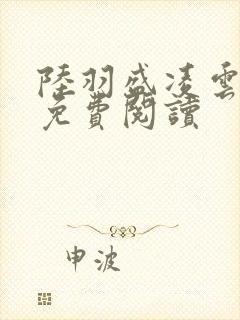 陸羽盛凌雲
免費閱讀
申波